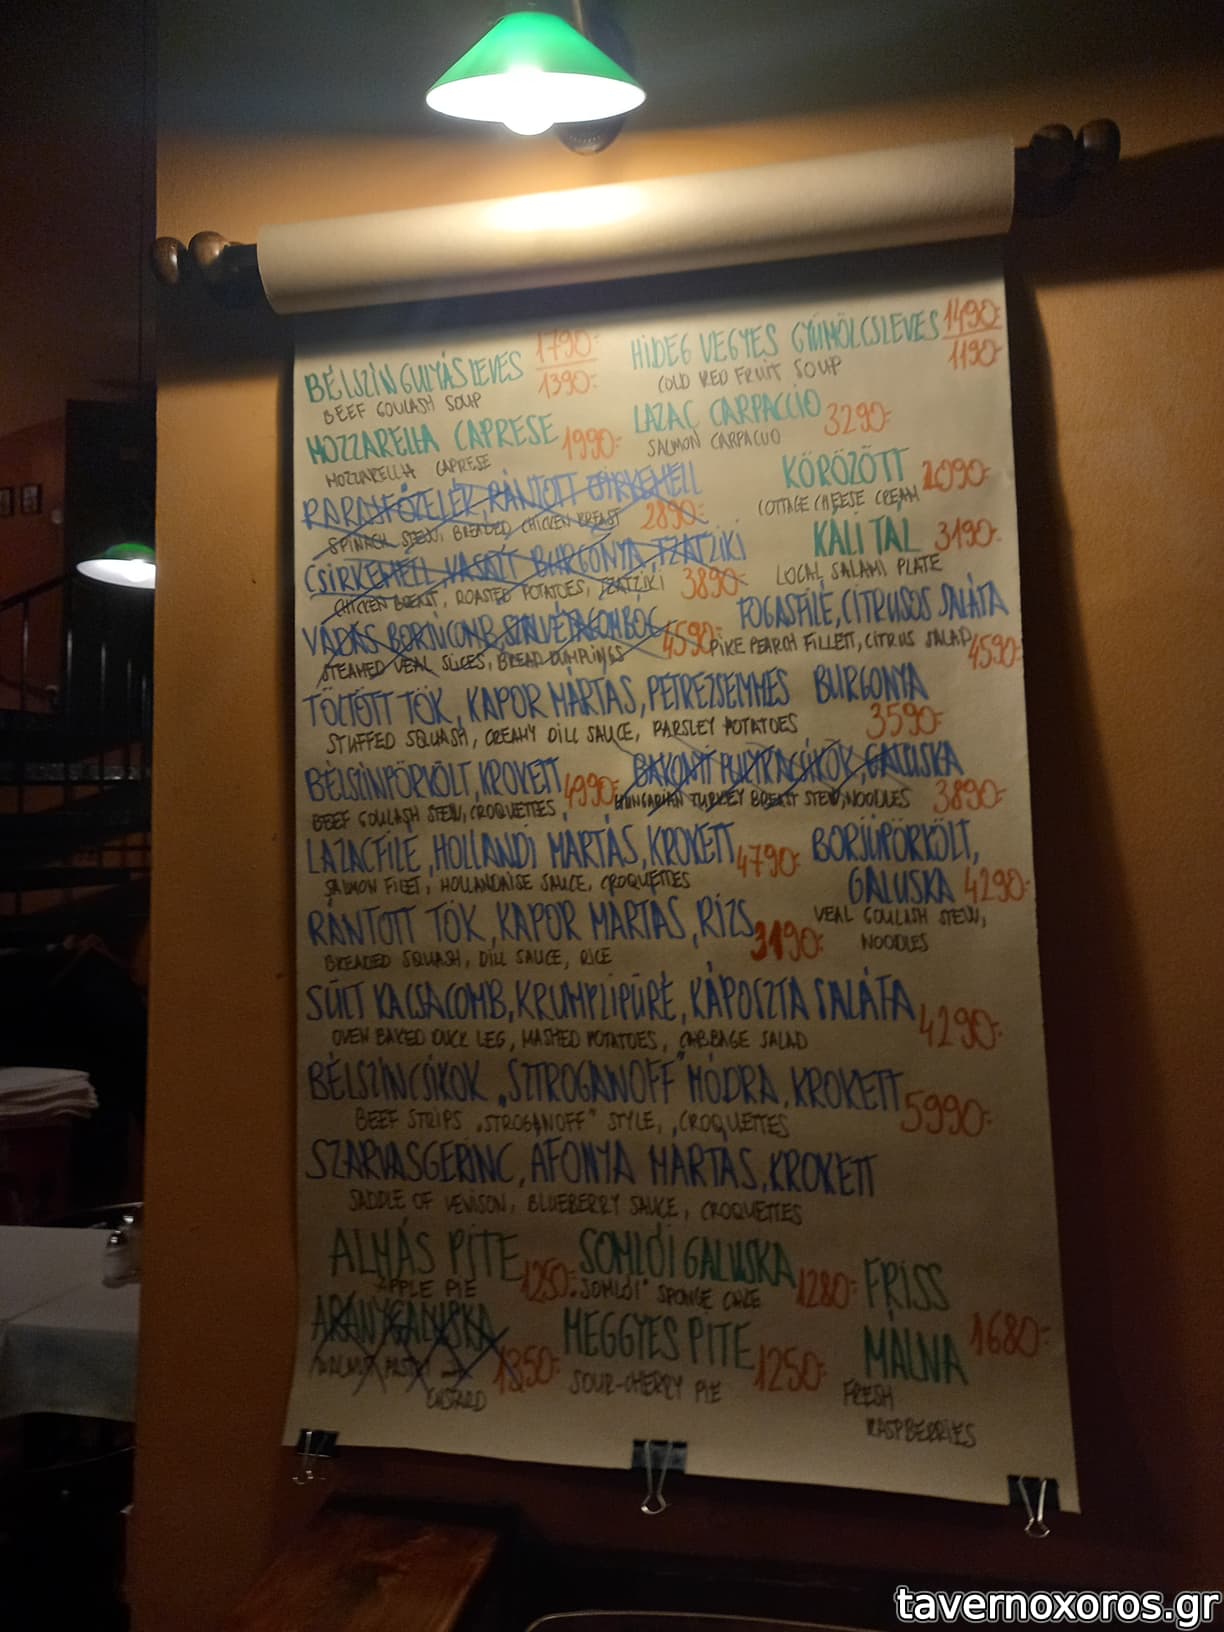 BÉLSZÍN GULYÁSLEVES 1790:-
1390:-
BEEF GOULASH SOUP
HIDEG VEGYES GYÜMÖLCSLEVES 1490:-
1190:-
COLD RED FRUIT SOUP
MOZZARELLA CAPRESE 1990:-
MOZZARELLA CAPRESE
LAZAC CARPACCIO 3290:-
SALMON CARPACCIO
KÖRÖZÖTT 2090:-
COTTAGE CHEESE CREAM
PARAJFŐZELÉK, RÁNTOTT CSIRKEMELL
SPINACH STEW, BREADED CHICKEN BREAST 2890:-
KÁLI TÁL 3190:-
LOCAL SALAMI PLATE
CSIRKEMELL, VASALT BURGONYA, TZATZIKI
CHICKEN BREAST, ROASTED POTATOES, TZATZIKI 3890:-
VADAS BORJÚCOMB, SZALVÉTAGOMBÓC 4590:-
STEAMED VEAL SLICES, BREAD DUMPLINGS
FOGASFILÉ, CITRUSOS SALÁTA
PIKE PEARCH FILLETT, CITRUS SALAD 4590:-
TÖLTÖTT TÖK, KAPOR MÁRTÁS, PETREZSELYMES BURGONYA
STUFFED SQUASH, CREAMY DILL SAUCE, PARSLEY POTATOES 3590:-
BÉLSZÍNPÖRKÖLT, KROKETT 4990:-
BEEF GOULASH STEW, CROQUETTES
BAKONYI PULYKACSÍKOK, GALUSKA
HUNGARIAN TURKEY BREAST STEW, NOODLES 3890:-
LAZACFILÉ, HOLLANDI MÁRTÁS, KROKETT 4790:-
SALMON FILET, HOLLANDAISE SAUCE, CROQUETTES
BORJÚPÖRKÖLT,
GALUSKA 4290:-
VEAL GOULASH STEW,
NOODLES
RÁNTOTT TÖK, KAPOR MÁRTÁS, RIZS 3190:-
BREADED SQUASH, DILL SAUCE, RICE
SÜLT KACSACOMB, KRUMPLIPÜRÉ, KÁPOSZTA SALÁTA 4290:-
OVEN BAKED DUCK LEG, MASHED POTATOES, CABBAGE SALAD
BÉLSZÍNCSÍKOK „SZTROGANOFF" MÓDRA, KROKETT 5990:-
BEEF STRIPS „STROGANOFF" STYLE, CROQUETTES
SZARVASGERINC, ÁFONYA MÁRTÁS, KROKETT
SADDLE OF VENISON, BLUEBERRY SAUCE, CROQUETTES
ALMÁS PITE 1250:-
APPLE PIE
SOMLÓI GALUSKA 1280:-
„SOMLÓI" SPONGE CAKE
FRISS
MÁLNA 1680:-
FRESH
RASPBERRIES
ARANYGALUSKA 1350:-
WALNUT PASTRY
CUSTARD
MEGGYES PITE 1250:-
SOUR-CHERRY PIE
tavernoxoros.gr